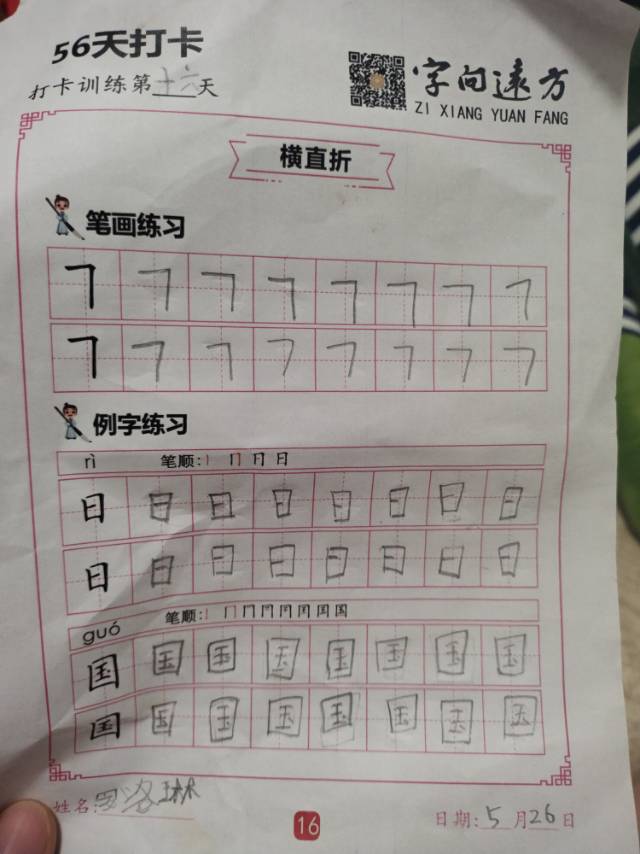 56天打卡
打卡训练第十六天
字向遠方
ZI XIANG YUAN FANG
横直折
笔画练习
㇕ ㇕ ㇕ ㇕ ㇕ ㇕ ㇕ ㇕
㇕ ㇕ ㇕ ㇕ ㇕ ㇕ ㇕ ㇕
例字练习
rì 笔顺: 日
日 日 日 日 日 日 日 日
日 日 日 日 日 日 日 日
guó 笔顺: 国
国 国 国 国 国 国 国 国
国 国 国 国 国 国 国 国
姓名: 洛琳
16
日期: 5月26日